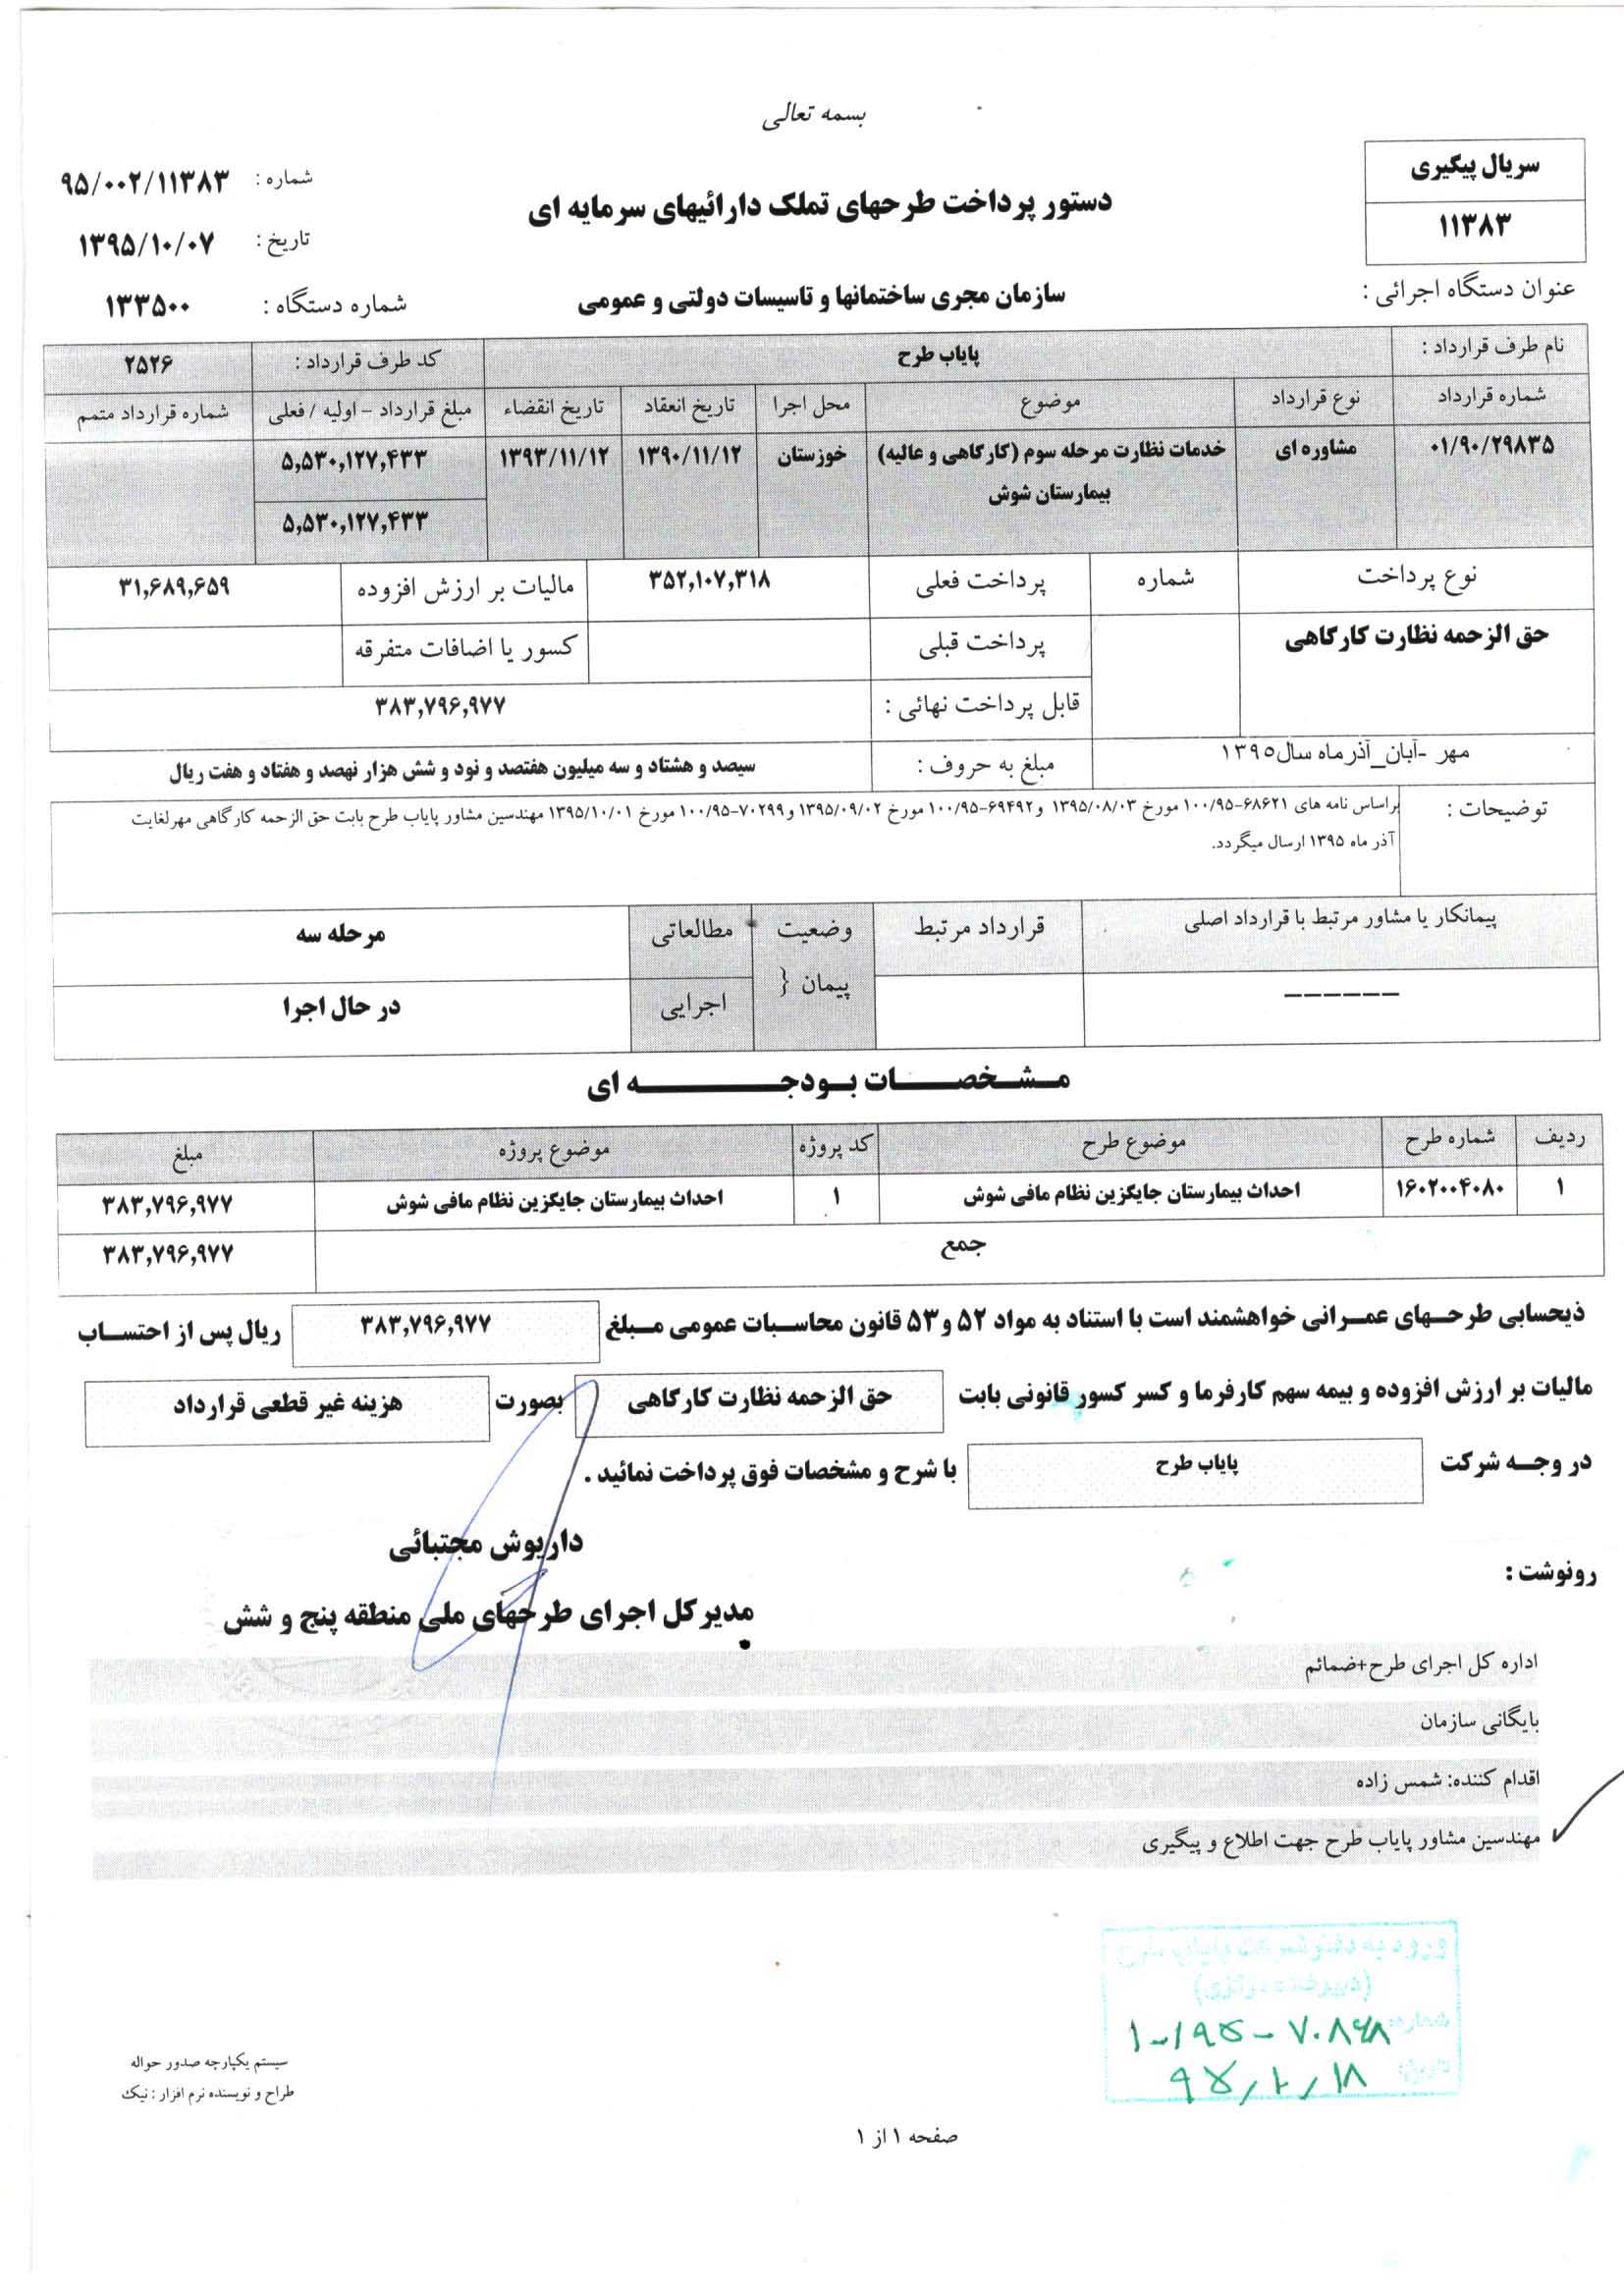 بسمه تعالی
سریال پیگیری
۱۱۳۸۳
دستور پرداخت طرحهای تملک دارائیهای سرمایه ای
شماره : ۹۵/۰۰۲/۱۱۳۸۳
تاریخ : ۱۳۹۵/۱۰/۰۷
عنوان دستگاه اجرائی : سازمان مجری ساختمانها و تاسیسات دولتی و عمومی شماره دستگاه : ۱۳۳۵۰۰
نام طرف قرارداد : پایاب طرح کد طرف قرارداد : ۲۵۲۶
شماره قرارداد نوع قرارداد موضوع محل اجرا تاریخ انعقاد تاریخ انقضاء مبلغ قرارداد - اولیه / فعلی شماره قرارداد متمم
۰۱/۹۰/۲۹۸۳۵ مشاوره ای خدمات نظارت مرحله سوم (کارگاهی و عالیه) خوزستان ۱۳۹۰/۱۱/۱۲ ۱۳۹۳/۱۱/۱۲ ۵,۵۳۰,۱۲۷,۴۳۳
بیمارستان شوش ۵,۵۳۰,۱۲۷,۴۳۳
نوع پرداخت شماره پرداخت فعلی ۳۵۲,۱۰۷,۳۱۸ مالیات بر ارزش افزوده ۳۱,۶۸۹,۶۵۹
حق الزحمه نظارت کارگاهی پرداخت قبلی کسور یا اضافات متفرقه
قابل پرداخت نهائی : ۳۸۳,۷۹۶,۹۷۷
مهر -آبان_آذر ماه سال۱۳۹۵ مبلغ به حروف : سیصد و هشتاد و سه میلیون هفتصد و نود و شش هزار نهصد و هفتاد و هفت ریال
توضیحات : براساس نامه های ۶۸۶۲۱-۱۰۰/۹۵ مورخ ۱۳۹۵/۰۸/۰۳ و۶۹۴۹۲-۱۰۰/۹۵ مورخ ۱۳۹۵/۰۹/۰۲ و۷۰۲۹۹-۱۰۰/۹۵ مورخ ۱۳۹۵/۱۰/۰۱ مهندسین مشاور پایاب طرح بابت حق الزحمه کارگاهی مهرلغایت
آذر ماه ۱۳۹۵ ارسال میگردد.
پیمانکار یا مشاور مرتبط با قرارداد اصلی قرارداد مرتبط وضعیت مطالعاتی مرحله سه
------ پیمان { اجرایی در حال اجرا
مشخصات بودجه ای
ردیف شماره طرح موضوع طرح کد پروژه موضوع پروژه مبلغ
۱ ۱۶۰۲۰۰۴۰۸۰ احداث بیمارستان جایگزین نظام مافی شوش ۱ احداث بیمارستان جایگزین نظام مافی شوش ۳۸۳,۷۹۶,۹۷۷
جمع ۳۸۳,۷۹۶,۹۷۷
ذیحسابی طرحهای عمرانی خواهشمند است با استناد به مواد ۵۲ و۵۳ قانون محاسبات عمومی مبلغ ۳۸۳,۷۹۶,۹۷۷ ریال پس از احتساب
مالیات بر ارزش افزوده و بیمه سهم کارفرما و کسر کسور قانونی بابت حق الزحمه نظارت کارگاهی بصورت هزینه غیر قطعی قرارداد
در وجه شرکت پایاب طرح با شرح و مشخصات فوق پرداخت نمائید .
داریوش مجتبائی
مدیرکل اجرای طرحهای ملی منطقه پنج و شش
رونوشت :
اداره کل اجرای طرح+ضمائم
بایگانی سازمان
اقدام کننده: شمس زاده
مهندسین مشاور پایاب طرح جهت اطلاع و پیگیری
شماره:
سیستم یکپارچه صدور حواله
طراح و نویسنده نرم افزار : نیک
صفحه ۱ از ۱